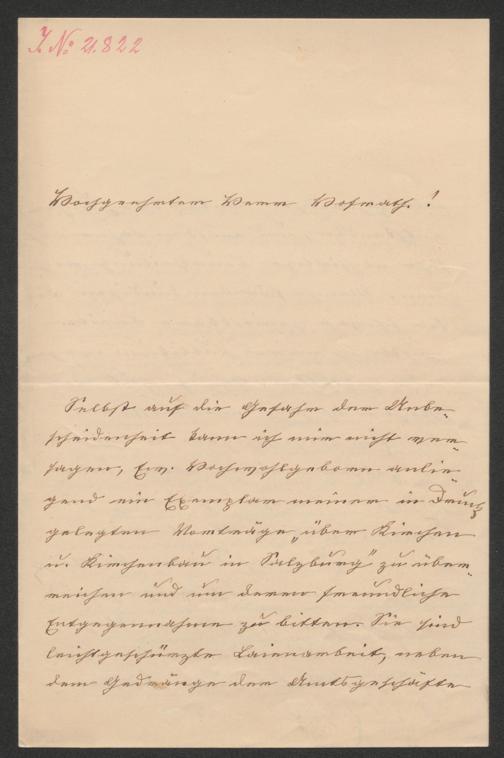 I. No. 21.822
Hochgeehrter Herr Hofrath!
Selbst auf die Gefahr der Unbe-
scheidenheit kann ich mir nicht ver-
sagen, Ew. Hochwohlgeboren anlie-
gend ein Exemplar meiner in Druck
gelegten Vorträge „über Kirchen
u. Kirchenbau in Salzburg" zu über-
reichen und um deren freundliche
Entgegennahme zu bitten. Sie sind
leichtgeschürzte Laienarbeit, neben
dem Gedränge der Amtsgeschäfte